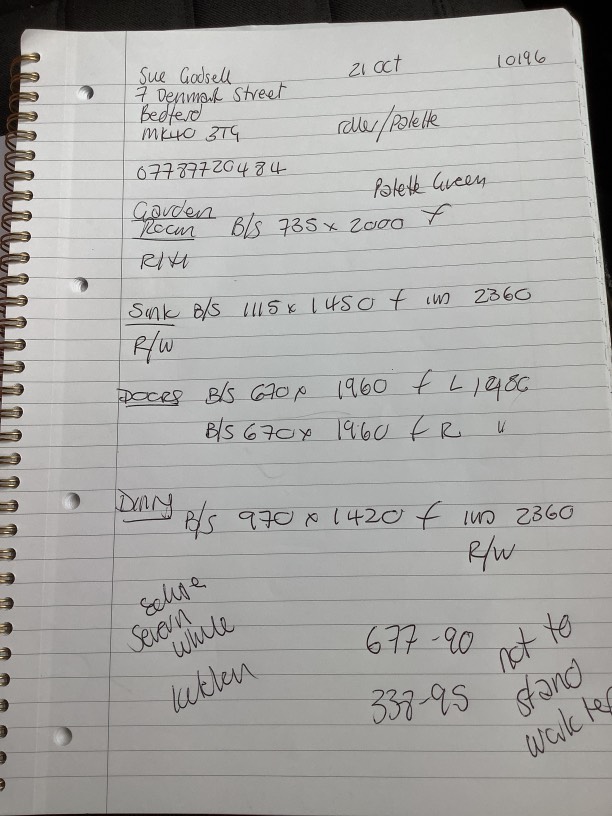 Sue Godsell 21 Oct 10196
7 Denmark Street
Bedford
MK40 3TG roller/Palette
07787720484
Palette Green
Garden
Room B/S 735 x 2000 f
R/W
Sink B/S 1115 x 1450 f 2360
R/W
DOORS B/S 670 x 1960 f L
B/S 670 x 1960 f R "
B/S 970 x 1420 f 2360
R/W
Severn
white
677-90 not to
338-95 stand